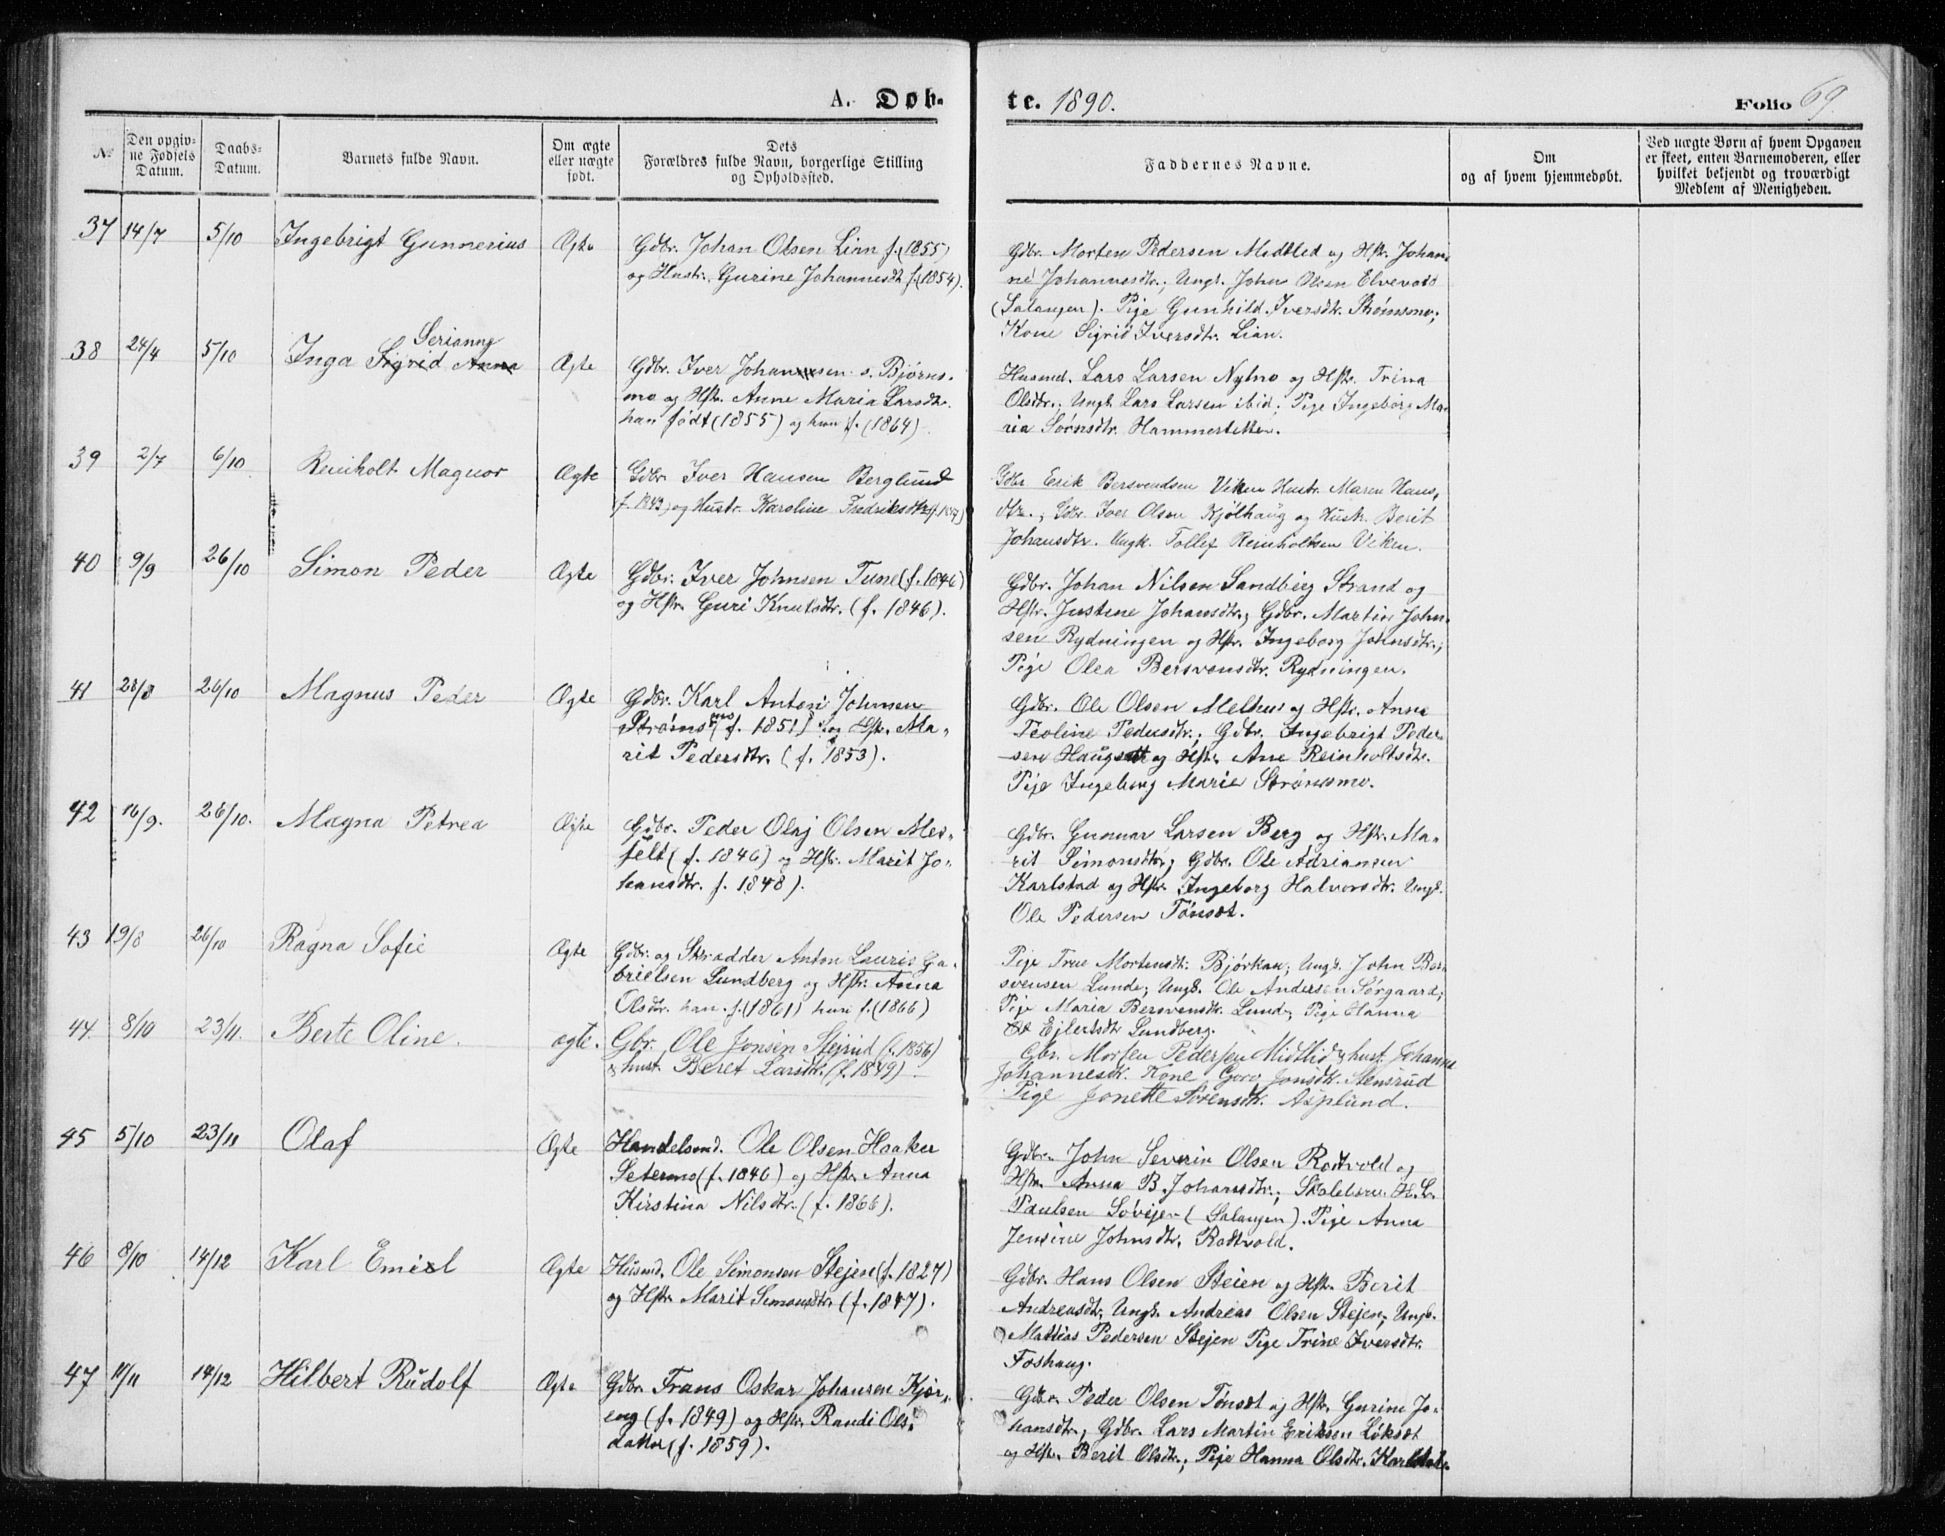 A. Døb-
te. 1890.
Folio 69.
No
Den opgiv-
ne Fødsels
Datum.
Daabs-
Datum.
Barnets fulde Navn.
Om ægte
eller uægte
født.
Dets
Forældres fulde Navn, borgerlige Stilling
og Opholdssted.
Faddernes Navne.
Om
og af hvem hjemmedøbt.
Ved uægte Børn af hvem Opgaven
er skeet, enten Barnemoderen, eller
hvilket bekjendt og troværdigt
Medlem af Menigheden.
37 14/7 5/10 Ingebrigt Gunnerius Ægte
Gdbr. Johan Olsen Lian f. (1855)
og Hustr. Gurine Johannesdt f. (1854).
Gdbr. Morten Pedersen Midtlid og Hstr. Johan-
ne Johannesdtr.; Ungk. John Olsen Elvevold
(Salangen). Pige Gunhild Iversdtr. Strømsmo;
Kone Sigrid Iversdtr. Lian.
Serianna
38 24/4 5/10 Inga Sigrid Anna Ægte
Gdbr. Iver Johansen s. Bjørns-
mo og Hstr. Anne Maria Larsdtr.
han født (1855) og hun f. (1864).
Husmd. Lars Larsen Nylmo og Hstr. Trina
Olsdtr.; Ungk. Lars Larsen ibid; Pige Ingeborg Ma-
ria Sørnsdtr. Hammerletten.
39 2/7 6/10 Reinholt Magnor Ægte
Gdbr. Iver Hansen Berglund
f. 1843) og Hustr. Karoline Fredriksdtr
Gdbr Erik Bersvendsen Viken Hustr. Maren Hans-
dtr.; Gdbr. Iver Olsen Kjølhaug og Hustr. Berit
Johansdtr. Ungk. Tollef Reinholtsen Viken.
40 9/9 26/10 Simon Peder Ægte
Gdbr. Iver Johnsen Tune (f. 1846)
og Hstr. Guri Knutsdtr. (f. 1846).
Gdbr. Johan Nilsen Sandberg Strand og
Hstr. Justine Johansdtr.; Gdbr. Martin John-
sen Rydningen og Hstr. Ingeborg Johnsdtr.;
Pige Olea Bersvensdtr. Rydningen.
41 28/8 26/10 Magnus Peder Ægte
Gdbr. Karl Anton Johnsen
Strømsmo (f. 1851) og Hstr. Ma-
rit Pedersdtr. (f. 1853).
Gdbr. Ole Olsen Melhus og Hstr. Anna
Teoline Pedersdtr.; Gdbr. Ingebrigt Peder-
sen Haugset og Hstr. Ane Reinholtsdtr.
Pige Ingeborg Marie Strømsmo.
42 16/9. 26/10. Magna Petrea Ægte
Gdbr. Peder Olaj Olsen Mes-
felt (f. 1846) og Hstr. Marit Jo-
hansdtr. f. 1848).
Gdbr. Gunnar Larsen Berg og Hstr. Ma-
rit Simonsdtr; Gdbr. Ole Adriansen
Karlstad og Hstr. Ingeborg Halvorsdtr. Ungk.
Ole Pedersen Tønset.
43 19/8 26/10 Ragna Sofie Ægte
Gdbr. og Skrædder Anton Lauris Ga-
brielsen Lundberg og Hstr. Anna
Olsdtr. han. f. (1861) hun f. (1866)
Pige Trine Mortensdtr. Bjørkan; Ungk. John Ber-
svensen Lunde; Ungk. Ole Andersen Sørgaard;
Pige Maria Bersvensdtr. Lund; Pige Hanna
Ejlertsdtr Lundberg.
44. 8/10 23/11. Berte Oline. ægte.
Gbr. Ole Jonsen Stejrud (f. 1856)
& hust. Beret Larsdtr. (f. 1849)
Gbr. Morten Pedersen Midtlid & hust. Johanna
Johannesdtr. Kone Goro Jonsdtr. Stensrud
Pige Jonette Sørensdtr. Asplund.
45 5/10 23/11 Olaf Ægte
Handelsmd. Ole Olsen Haaker
Setermo (f. 1846) og Hstr. Anna
Kirstina Nilsdtr. (f. 1866).
Gdbr. John Severin Olsen Rostvold og
Hstr. Anna B. Johansdtr.; Skolelærer H. L.
Paulsen Søvejen (Salangen). Pige Anna
Jensine Johnsdtr. Rostvold.
46 8/10 14/12 Karl Emil Ægte
Husmd. Ole Simonsen Stejen (f. 1827)
og Hstr. Marit Simonsdtr. (f. 1847).
Gdbr. Hans Olsen Steien og Hstr. Berit
Andreasdtr. Ungk. Andreas Olsen Stejen; Ungk.
Mattias Pedersen Stejen Pige Trine Iversdtr.
Foshaug.
47 11/11 14/12 Hilbert Rudolf Ægte
Gdbr. Frans Oskar Johansen Kjør-
eng (f. 1849) og Hstr. Randi Ols-
datter (f. 1859).
Gdbr. Peder Olsen Tønset og Hstr. Gurine Jo-
hansdtr.; Gdbr. Lars Martin Eriksen Løkset
og Hstr. Berit Olsdtr.; Pige Hanna Olsdtr. Karlstad.